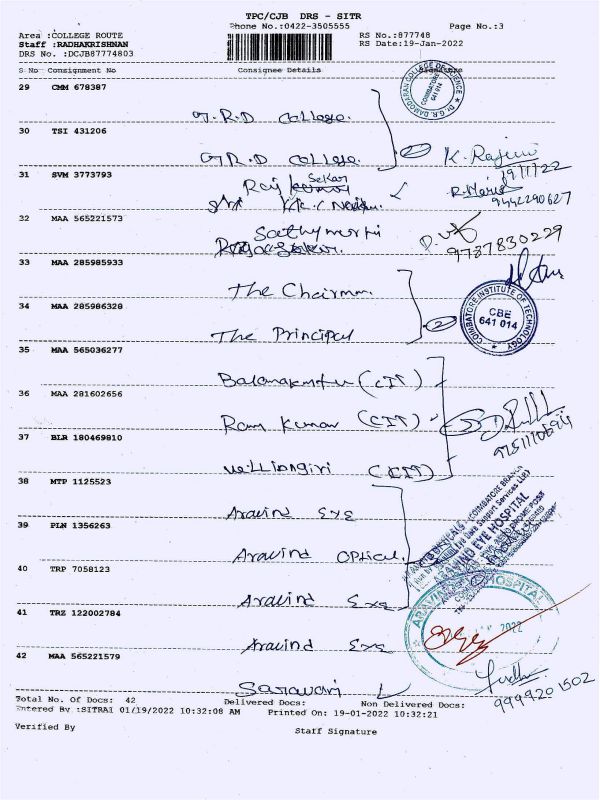 TPC/CJB DRS - SITR
Phone No.:0422-3505555
Page No.:3
Area :COLLEGE ROUTE
RS No.:877748
Staff :RADHAKRISHNAN
RS Date:19-Jan-2022
DRS No. :DCJB87774803
S No Consignment No Consignee Details Signature
29 CMM 678387
G.R.D College.
30 TSI 431206
GR.D College.
K. Rajini
19/1/22
31 SVM 3773793
Sekar
32 MAA 565221573
Sathymurthi
9787830229
33 MAA 285985933
The Chairman.
34 MAA 285986328
The Principal
2
COIMBATORE INSTITUTE OF TECHNOLOGY
CBE
641 014
35 MAA 565036277
(CIT)
36 MAA 281602656
Ram Kumar (CIT)
37 BLR 180469810
Velliangiri (CIT)
38 MTP 1125523
Aravind Eye
39 PLN 1356263
Aravind Optical.
40 TRP 7058123
Aravind Eye
41 TRZ 122002784
Aravind Eye
ARAVIND EYE HOSPITAL
2022
42 MAA 565221579
Total No. Of Docs: 42 Delivered Docs: Non Delivered Docs:
Entered By :SITRAI 01/19/2022 10:32:08 AM Printed On: 19-01-2022 10:32:21
Verified By
Staff Signature